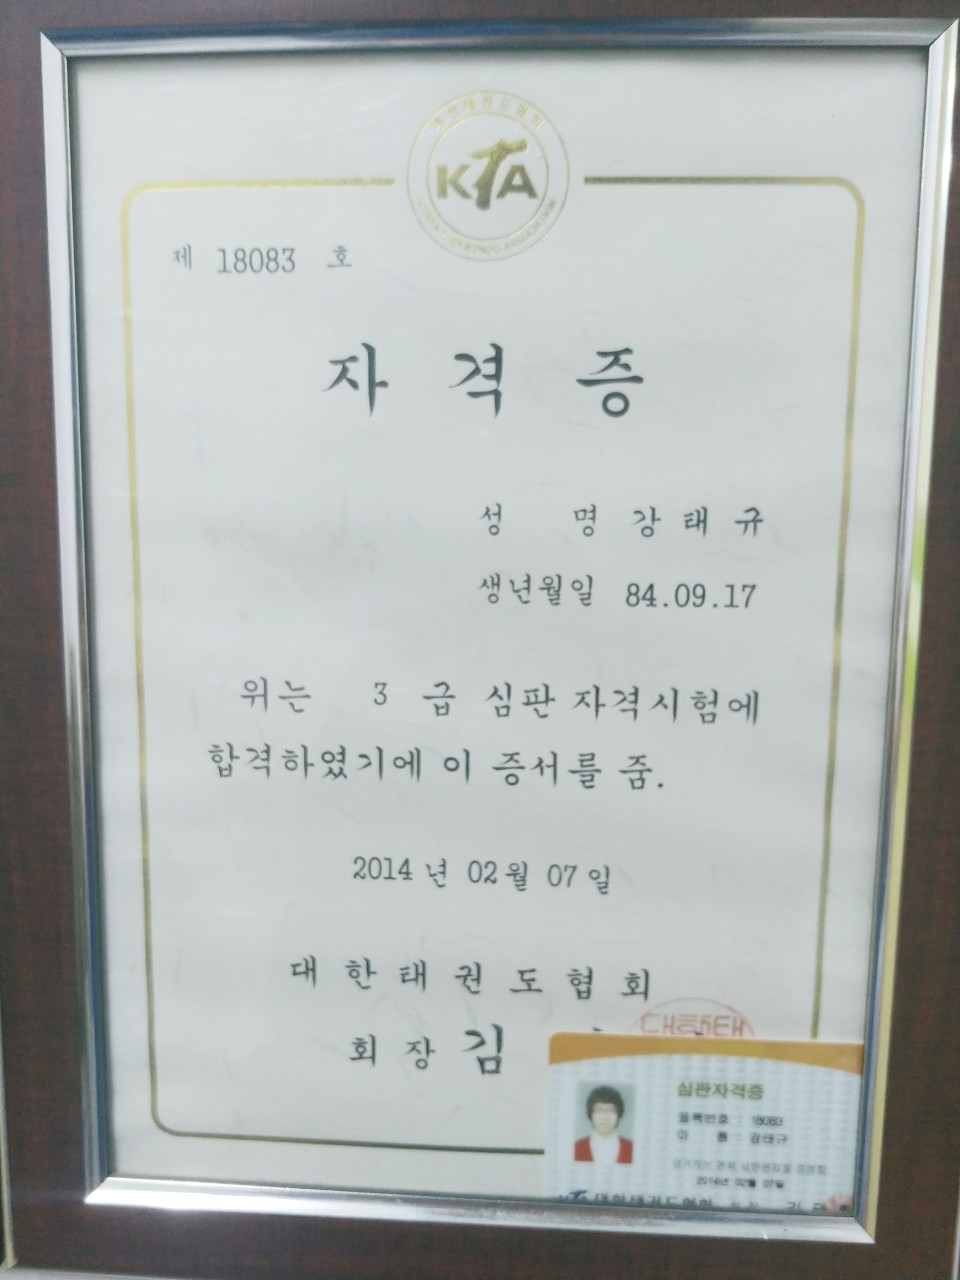 대한태권도협회
KTA
KOREA TAEKWONDO ASSOCIATION
제 18083 호
자 격 증
성 명 강 태 규
생년월일 84.09.17
위는 3 급 심판 자격시험에
합격하였기에 이 증서를 줌.
2014 년 02 월 07 일
대 한 태 권 도 협 회
회 장 김
대한태
심판자격증
등록번호 : 18083
이 름 : 강태규
2014년 02월 07일
대한태권도협회